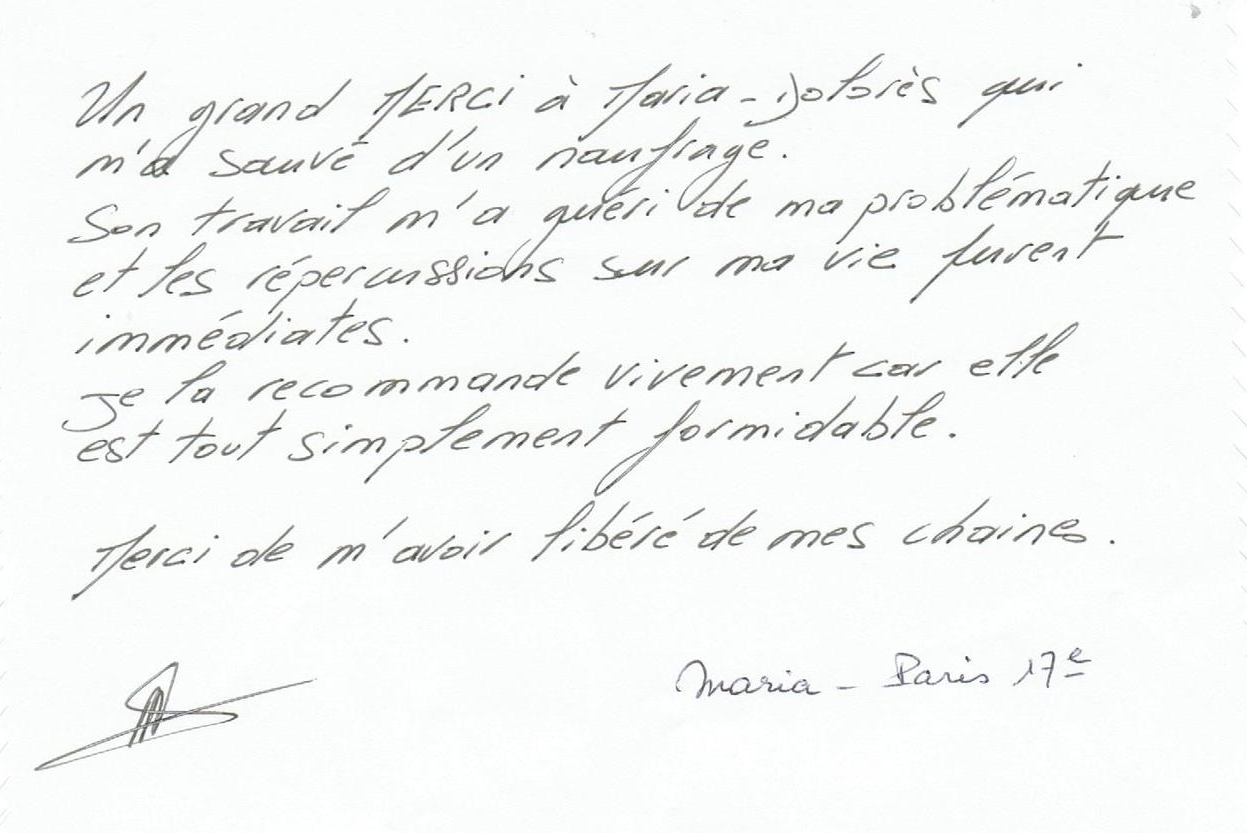 Un grand MERCI à Maria-Dolorès qui
m'a sauvé d'un naufrage.
Son travail m'a guéri de ma problématique
et les répercussions sur ma vie furent
immédiates.
Je la recommande vivement car elle
est tout simplement formidable.
Merci de m'avoir libéré de mes chaines.
Maria - Paris 17e